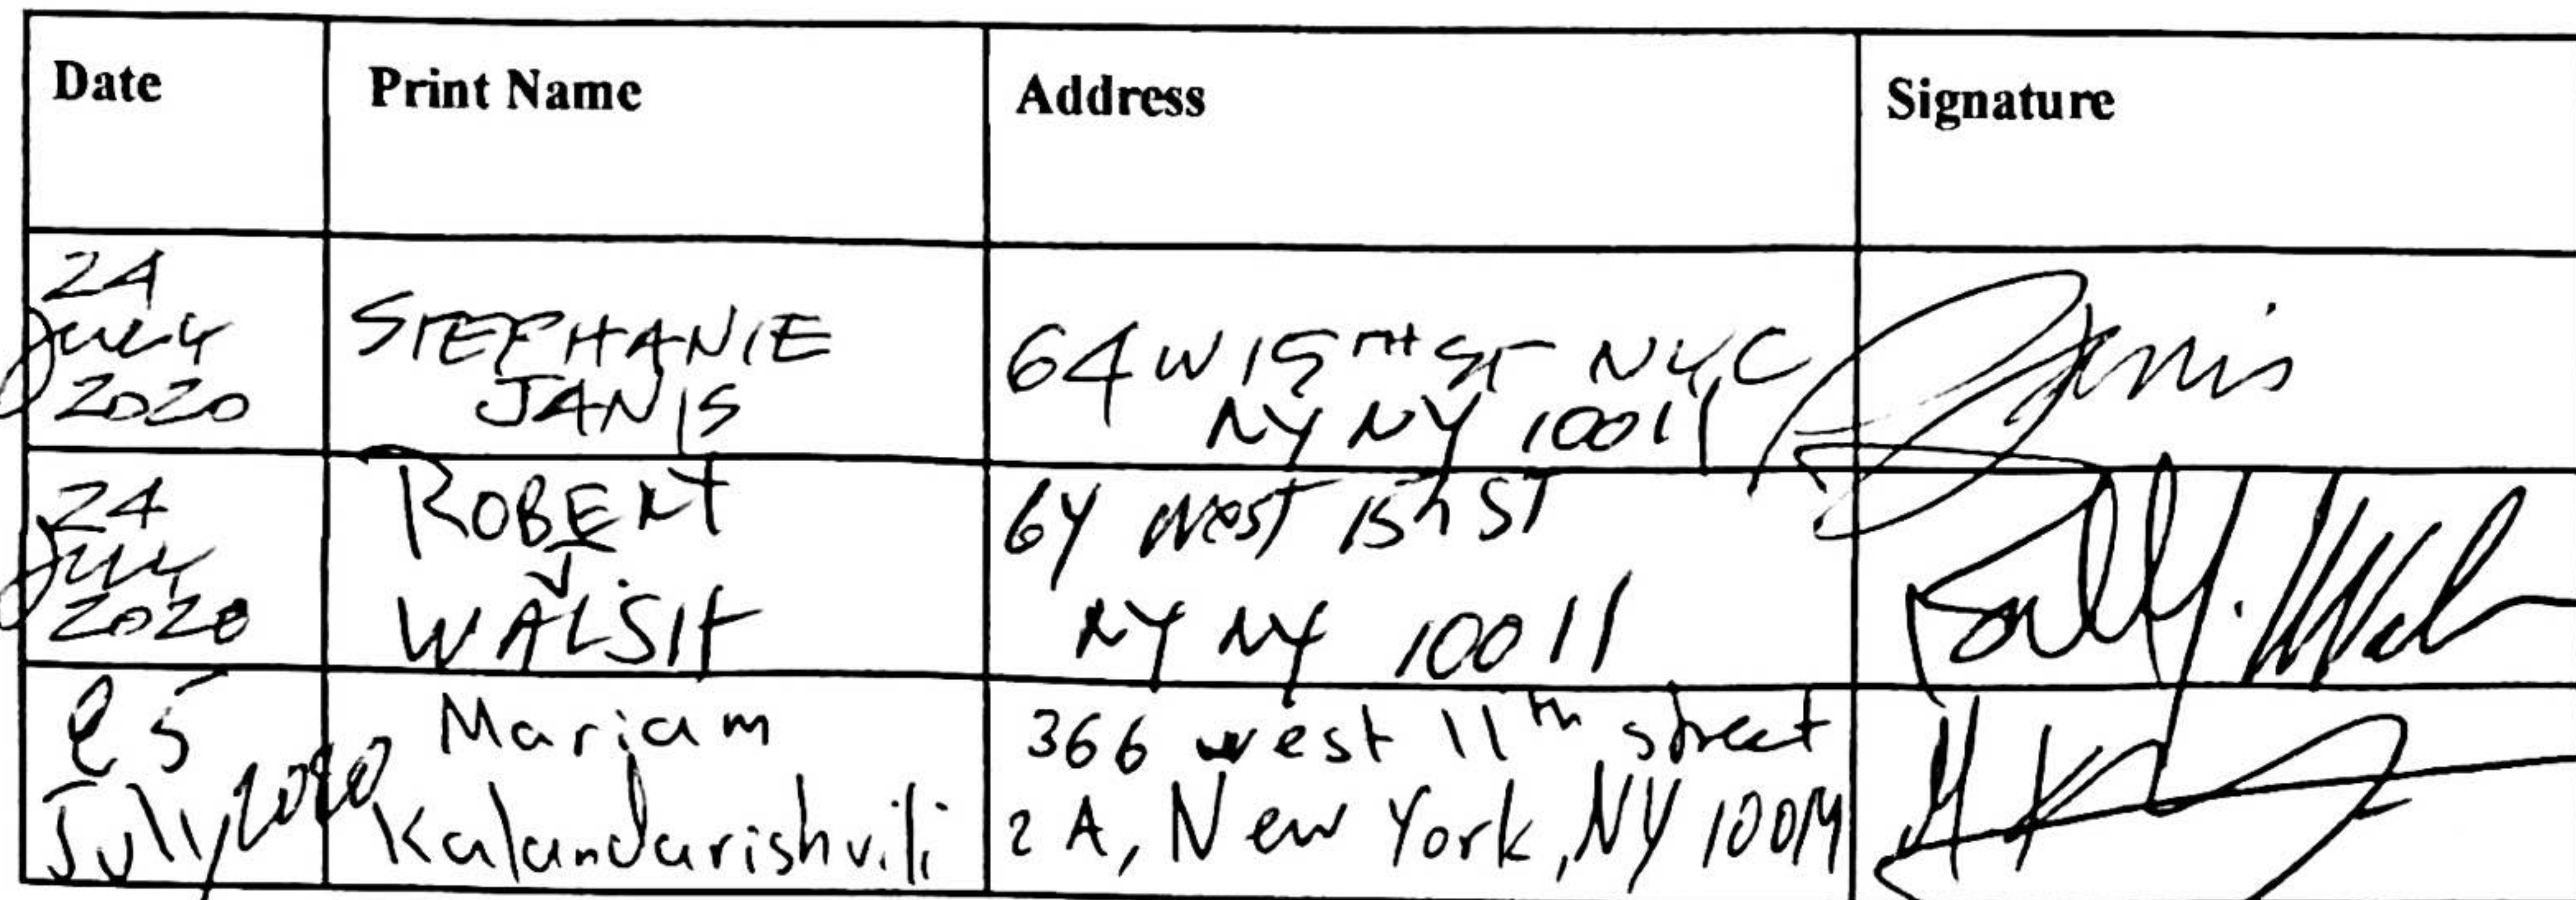 Date Print Name Address Signature
24
July
2020
STEPHANIE
JANIS
64 W 15TH ST NYC
NY NY 10011
Janis
24
July
2020
ROBERT
J.
WALSH
64 West 15th ST
NY NY 10011
25
July 2020
Mariam
Kalandarishvili
366 west 11th street
2A, New York, NY 10014